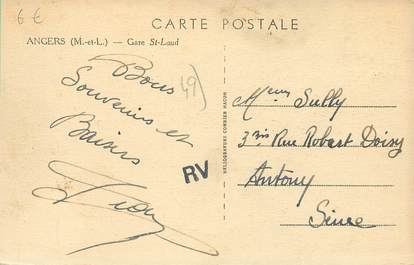 6€
CARTE POSTALE
ANGERS (M.-et-L.) — Gare St-Laud
(49)
Bons
Souvenirs et
Baisers
RV
HÉLIOGRAVURE COMBIER MACON
Sully
3 bis Rue Robert Doisy
Antony
Seine